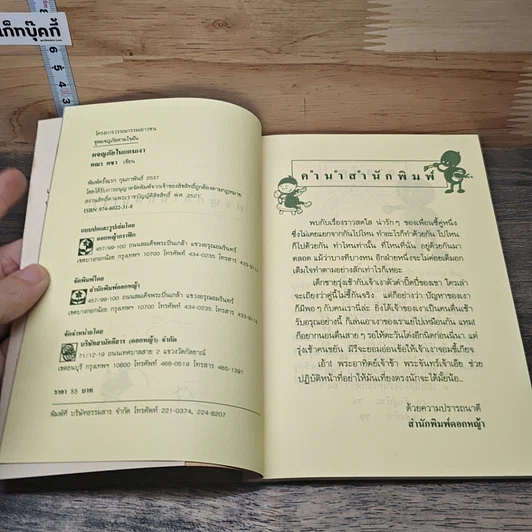 เก็ทบุ๊คกี้
โครงการวรรณกรรมเยาวชน
ชุดผจญภัยตามใจฝัน
ผจญภัยในแดนเงา
คณา คชา เขียน
พิมพ์ครั้งแรก กุมภาพันธ์ 2537
โดยได้รับการอนุญาตจัดพิมพ์จากเจ้าของลิขสิทธิ์ถูกต้องตามกฎหมาย
สงวนลิขสิทธิ์ตามพระราชบัญญัติลิขสิทธิ์ พ.ศ. 2521
ISBN 974-6022-31-8
แบบปกและรูปเล่มโดย
ดอกหญ้ากราฟิค
457/99-100 ถนนสมเด็จพระปิ่นเกล้า แขวงอรุณอมรินทร์
เขตบางกอกน้อย กรุงเทพฯ 10700 โทรศัพท์ 434-0235 โทรสาร 433-9114
จัดพิมพ์โดย
สำนักพิมพ์ดอกหญ้า
457/99-100 ถนนสมเด็จพระปิ่นเกล้า แขวงอรุณอมรินทร์
เขตบางกอกน้อย กรุงเทพฯ 10700 โทรศัพท์ 434-4235 โทรสาร 433-9114
จัดจำหน่ายโดย
บริษัทสามัคคีสาร (ดอกหญ้า) จำกัด
71/12-19 ถนนเทศบาลสาย 2 แขวงวัดกัลยาณ์
เขตธนบุรี กรุงเทพฯ 10600 โทรศัพท์ 466-0519 โทรสาร 465-1391
ราคา 55 บาท
พิมพ์ที่ บริษัทธรรมสาร จำกัด โทรศัพท์ 221-0374, 224-8207
คำนำสำนักพิมพ์
พบกับเรื่องราวสดใส น่ารักๆ ของเพื่อนซี้คู่หนึ่ง
ซึ่งไม่เคยแยกจากกันไปไหน ทำอะไรก็ทำด้วยกัน ไปไหน
ก็ไปด้วยกัน ทำไหนทำนั้น ที่ไหนที่นั่น อยู่ด้วยกันมา
ตลอด แม้ว่าบางทีบางหน อีกฝ่ายหนึ่งจะไม่ค่อยเต็มอก
เต็มใจทำตามอย่างสักเท่าไรก็เหอะ
เด็กชายรุ่งเช้ากับเจ้าเงาตัวดำปี๊ดปี๋ของเขา ใครเล่า
จะเถียงว่าคู่นี้ไม่ซี้กันจริง แต่ก็อย่างว่า ปัญหาของเงา
ก็มีพอๆ กับคนเรานี่ล่ะ ยิ่งได้เจ้าของเป็นคนตื่นเช้า
รับอรุณอย่างนี้ ก็เล่นเอาเงาของเราแย่ไปเหมือนกัน แหม!
ก็อยากนอนตื่นสายๆ รอให้ตะวันโด่งอีกนิดก่อนนี่นา แต่
รุ่งเช้าคนขยัน มีรึจะยอมอ่อนข้อให้เจ้าเงาจอมขี้เกียจ
เย้า! พระอาทิตย์เจ้าข้า พระจันทร์เจ้าเอ๊ย ช่วย
ปฏิบัติหน้าที่อย่าให้มันเที่ยงตรงนักจะได้มั้ยน้อ...
ด้วยความปรารถนาดี
สำนักพิมพ์ดอกหญ้า